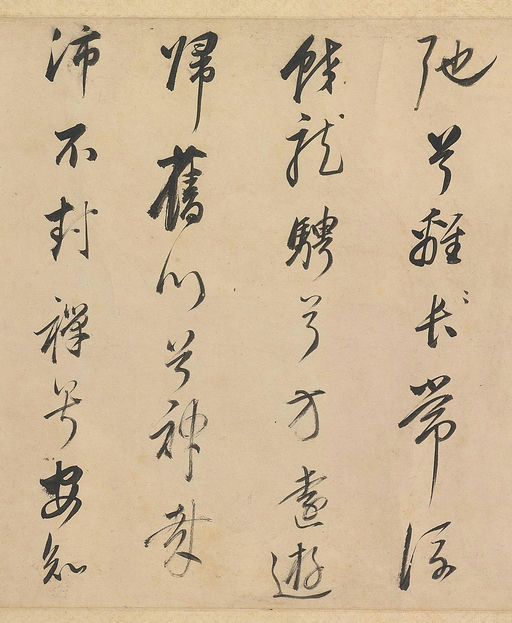 弛兮離長常流
蛟龍騁兮方遠遊
歸舊川兮神哉
沛不封禪兮安知